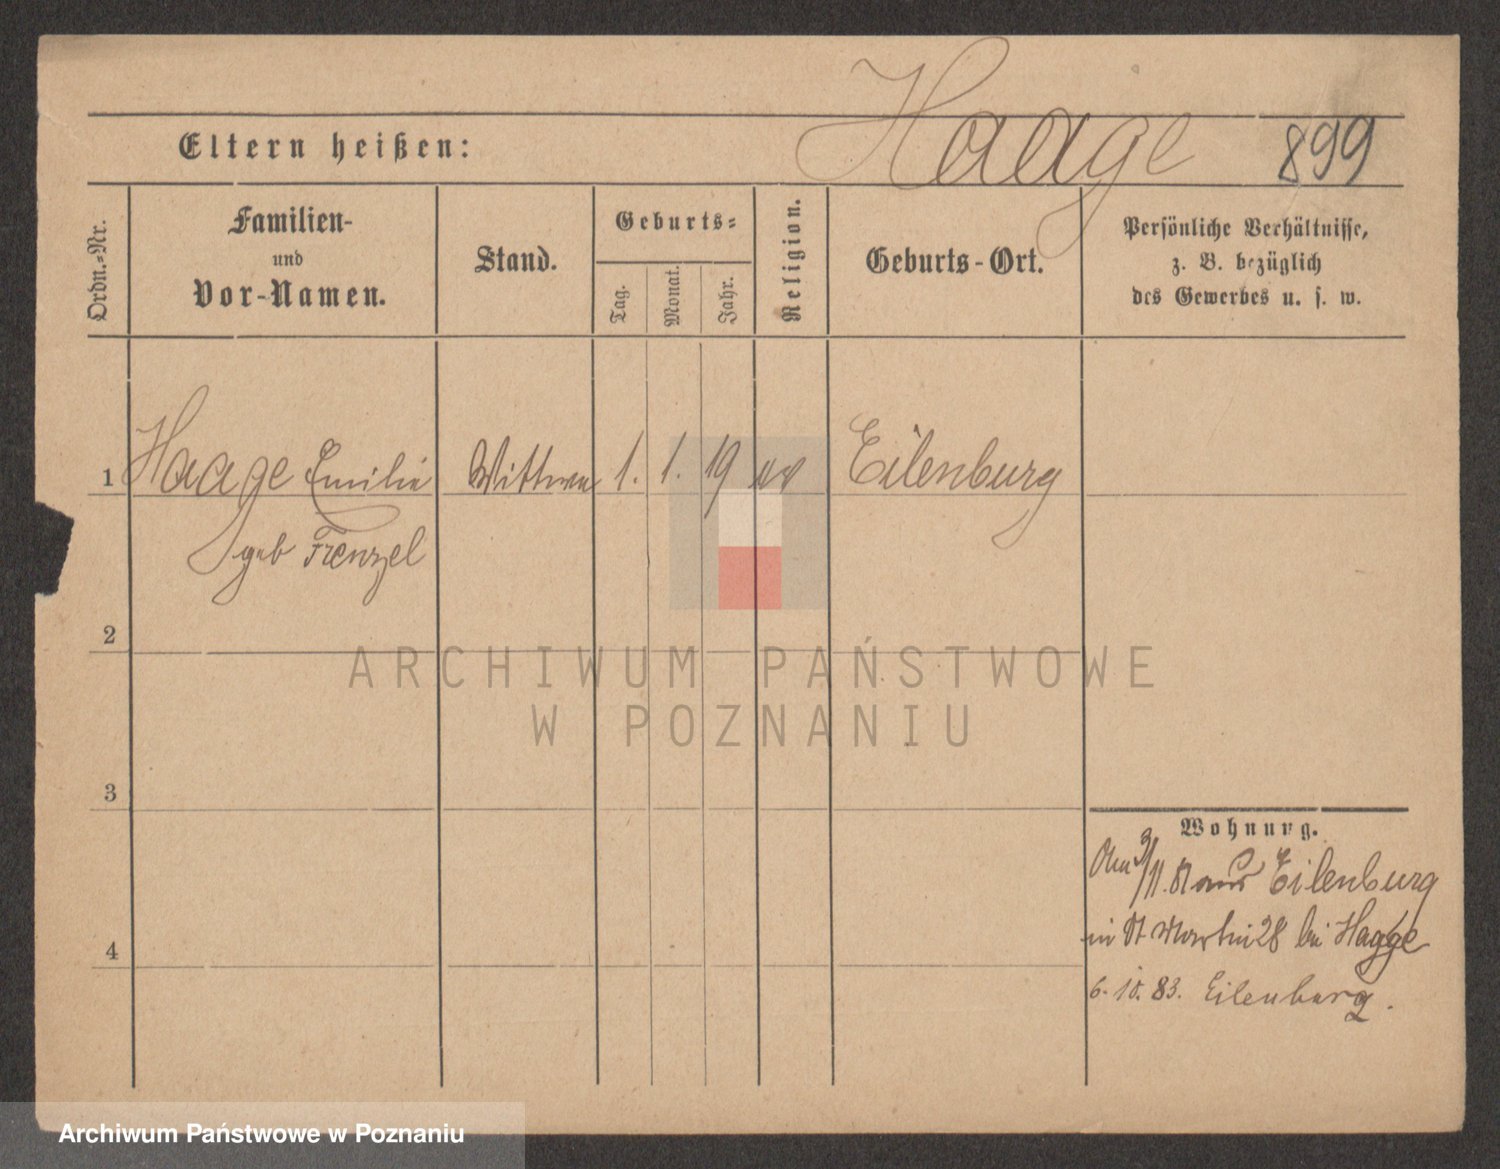 Haage 899
Eltern heißen:
Ordn.-Nr.
Familien-
und
Vor-Namen.
Stand.
Geburts-
Tag.
Monat.
Jahr.
Religion.
Geburts-Ort.
Persönliche Verhältnisse,
z. B. bezüglich
des Gewerbes u. s. w.
1 Haage Emilie Wittwe 1. 1. 19 ev Eilenburg
geb Frenzel
2
ARCHIWUM PAŃSTWOWE
W POZNANIU
3
Wohnung.
3/11. 81 aus Eilenburg
in St Martin 28 bei Hagge
4
6. 10. 83. Eilenburg.
Archiwum Państwowe w Poznaniu